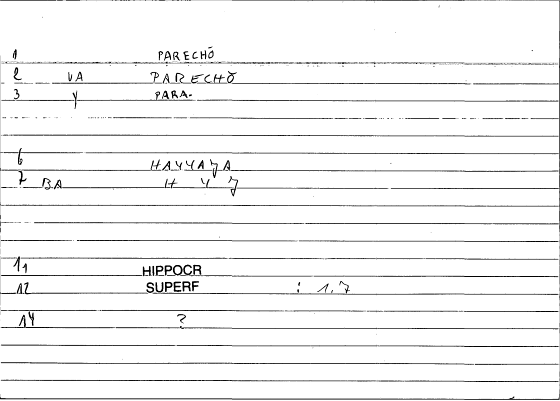 1 PARECHŌ
2 VA PARECHŌ
3 Y PARA-
6 HAYYAYA
7 BA H Y Y
11 HIPPOCR
12 SUPERF : 1.7
14 ?